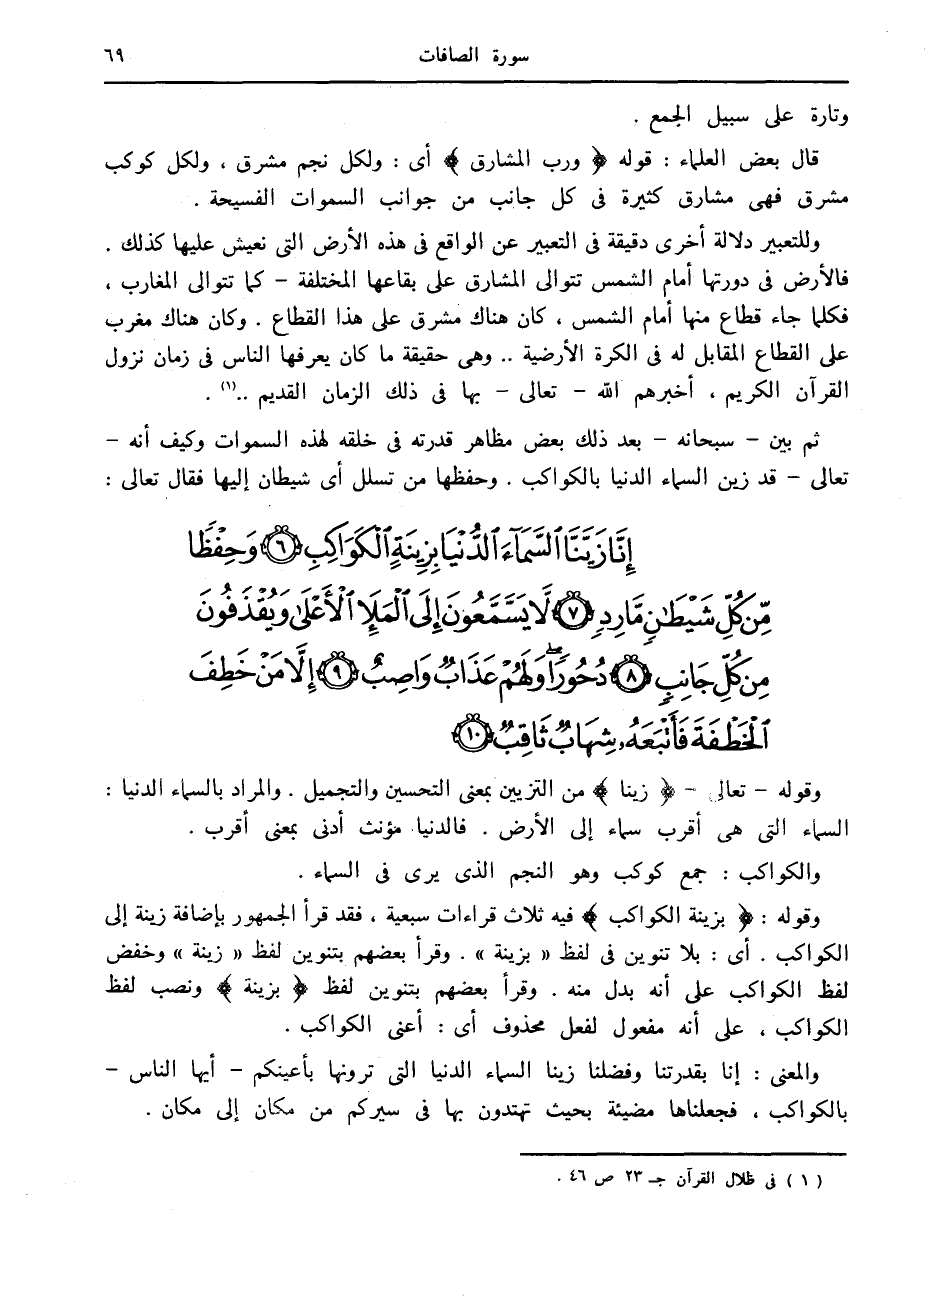 سورة الصافات ٦٩
وتارة على سبيل الجمع .
قال بعض العلماء : قوله ﴿ ورب المشارق ﴾ أى : ولكل نجم مشرق ، ولكل كوكب
مشرق فهى مشارق كثيرة فى كل جانب من جوانب السموات الفسيحة .
وللتعبير دلالة أخرى دقيقة فى التعبير عن الواقع فى هذه الأرض التى نعيش عليها كذلك .
فالأرض فى دورتها أمام الشمس تتوالى المشارق على بقاعها المختلفة – كما تتوالى المغارب ،
فكلما جاء قطاع منها أمام الشمس ، كان هناك مشرق على هذا القطاع . وكان هناك مغرب
على القطاع المقابل له فى الكرة الأرضية .. وهى حقيقة ما كان يعرفها الناس فى زمان نزول
القرآن الكريم ، أخبرهم الله – تعالى – بها فى ذلك الزمان القديم ..(١) .
ثم بين – سبحانه – بعد ذلك بعض مظاهر قدرته فى خلقه لهذه السموات وكيف أنه –
تعالى – قد زين السماء الدنيا بالكواكب . وحفظها من تسلل أى شيطان إليها فقال تعالى :
إِنَّا زَيَّنَّا ٱلسَّمَآءَ ٱلدُّنْيَا بِزِينَةٍ ٱلْكَوَاكِبِ ٦ وَحِفْظًا
مِّن كُلِّ شَيْطَٰنٍ مَّارِدٍ ٧ لَّا يَسَّمَّعُونَ إِلَى ٱلْمَلَإِ ٱلْأَعْلَىٰ وَيُقْذَفُونَ
مِن كُلِّ جَانِبٍ ٨ دُحُورًا ۖ وَلَهُمْ عَذَابٌ وَاصِبٌ ٩ إِلَّا مَنْ خَطِفَ
ٱلْخَطْفَةَ فَأَتْبَعَهُۥ شِهَابٌ ثَاقِبٌ ١٠
وقوله – تعالى – ﴿ زينا ﴾ من التزيين بمعنى التحسين والتجميل . والمراد بالسماء الدنيا :
السماء التى هى أقرب سماء إلى الأرض . فالدنيا مؤنث أدنى بمعنى أقرب .
والكواكب : جمع كوكب وهو النجم الذى يرى فى السماء .
وقوله : ﴿ بزينة الكواكب ﴾ فيه ثلاث قراءات سبعية ، فقد قرأ الجمهور بإضافة زينة إلى
الكواكب . أى : بلا تنوين فى لفظ « بزينة » . وقرأ بعضهم بتنوين لفظ « زينة » وخفض
لفظ الكواكب على أنه بدل منه . وقرأ بعضهم بتنوين لفظ ﴿ بزينة ﴾ ونصب لفظ
الكواكب ، على أنه مفعول لفعل محذوف أى : أعنى الكواكب .
والمعنى : إنا بقدرتنا وفضلنا زينا السماء الدنيا التى ترونها بأعينكم – أيها الناس –
بالكواكب ، فجعلناها مضيئة بحيث تهتدون بها فى سيركم من مكان إلى مكان .
( ١ ) فى ظلال القرآن جـ ٢٣ ص ٤٦ .